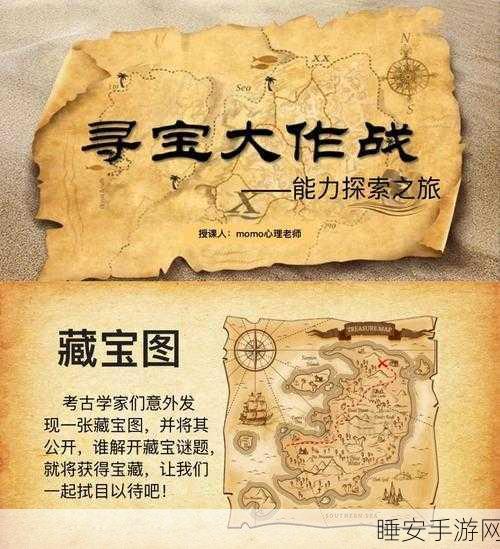 N
XX
Sea
寻宝大作战
——能力探索之旅
X
授课人：momo心理老师
藏宝图
考古学家们意外发
现一张藏宝图，并将其
公开，谁解开藏宝谜题，
就将获得宝藏，让我们
一起拭目以待吧！
TREASURE MAP
SOUTHERN SEA
睡安手游网